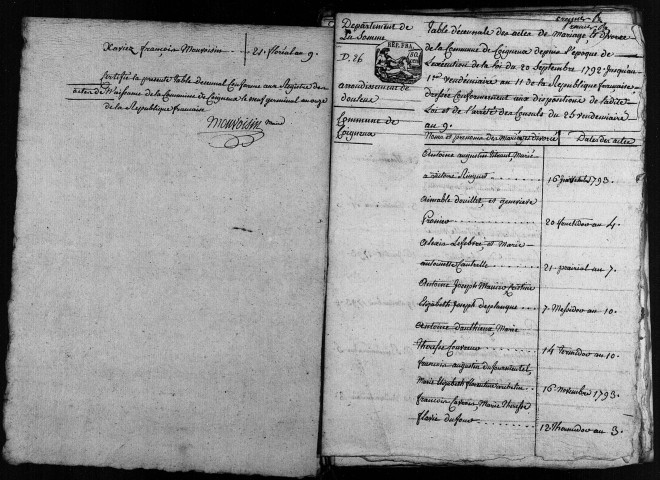 Xavier françois Monvoisin 21. floréal an 9.
Certifié la présente table décennale Conforme aux Registre des
actes de Naissance de la Commune de Coigneux le neuf germinal an onze
de la République française
Monvoisin
Département de
La Somme
D. 26
REP. FRA.
arrondissement de
doulens
Commune de
Coigneux
Table décennale des actes de Mariage, et divorce
de la Commune de Coigneux depuis l'époque de
l'exécution de la loi du 20 Septembre 1792 jusqu'au
1er vendémiaire an 11 de la République française
dressée Conformément aux dispositions de ladite
Loi et de l'arrêté des Consuls du 25 vendémiaire
an 9.
Noms et prénoms des Mariés et divorcés Dates des actes
Antoine augustin Marié
a victoire 16 1793.
aimable douillet, et geneviève
20 fructidor an 4.
Alexis Lefebvre, et Marie
antoinette 21 prairial an 7.
Antoine Joseph
Elizabeth Joseph deplanque 7 Messidor an 10.
Antoine dauthieux, Marie
Therese 14 termidor an 10.
françois augustin
Marie Elizabeth florentine 16 Novembre 1793.
françois Marie Therese
flavie dufour 12 thermidor an 3.